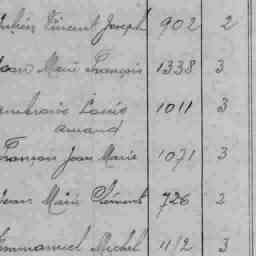 Julien Vincent Joseph 902 2
Jean Marie François 1338 3
Ambroise Louis 1011 3
Amand
François Jean Marie 1071 3
Jean Marie Clément 726 2
Emmanuel Michel 1112 3